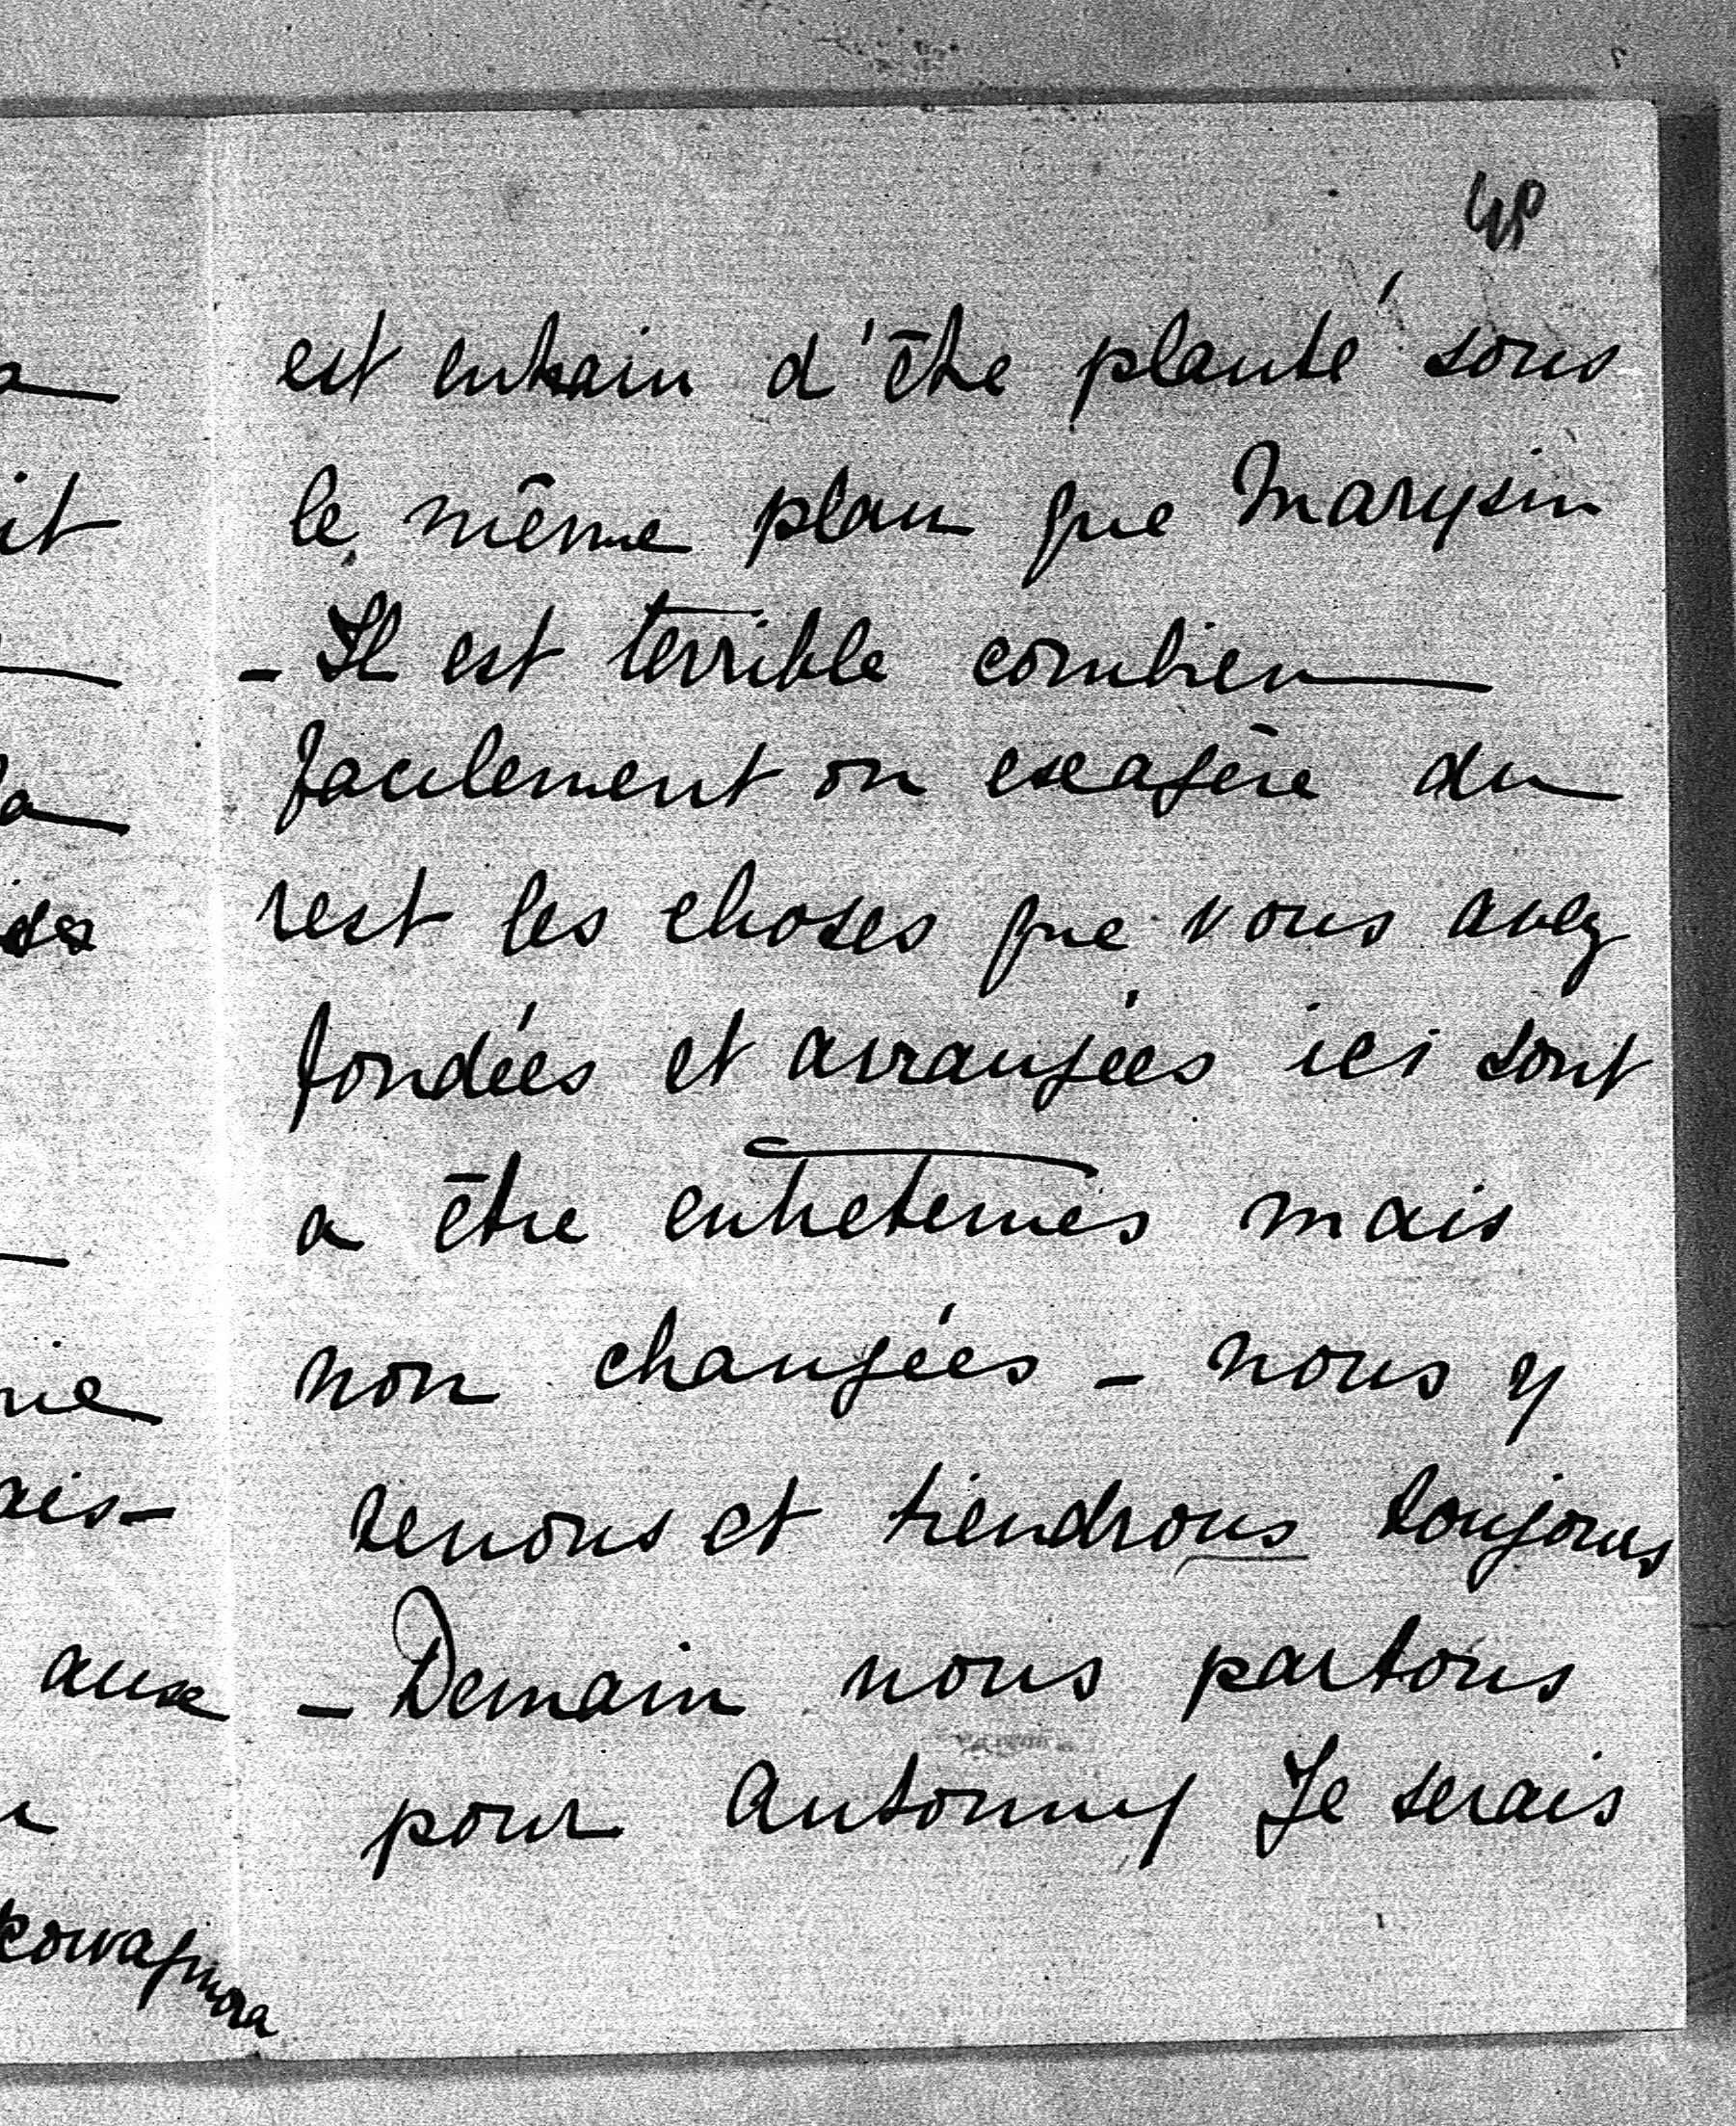 est entrain d'être planté sous
le même plan que Marysin
- Il est terrible combien
facilement on exagère du
rest les choses que vous avez
fondées et arrangées ici sont
a être entretenués mais
non changées - nous y
tenons et tiendrons toujours
- Demain nous partons
pour Antonny Je serais